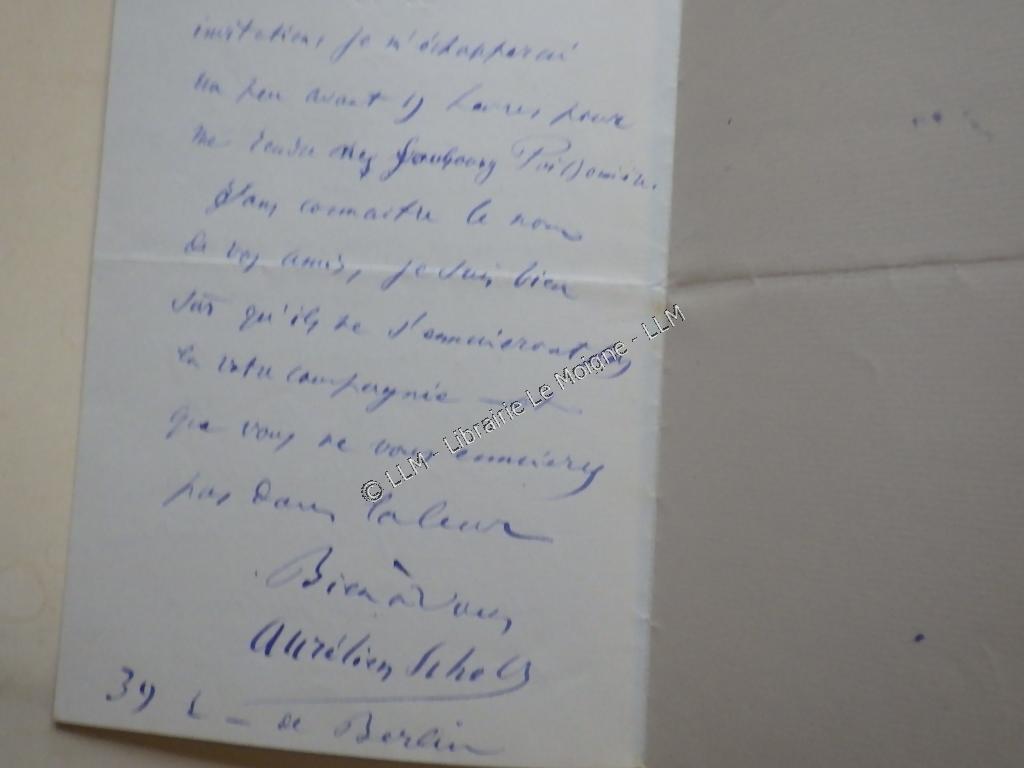 invitation, je m'échapperai
un peu avant 9 heures pour
me rendre faubourg Poissonière.
Sans connaitre le nom
de vos amis, je suis bien
sûr qu'ils ne s'ennuieront
en votre compagnie —
que vous ne vous ennuierez
pas dans la leur
Bien à vous
Aurélien Scholl
39 — de Berlin
© LLM - Librairie Le Moigne - LLM